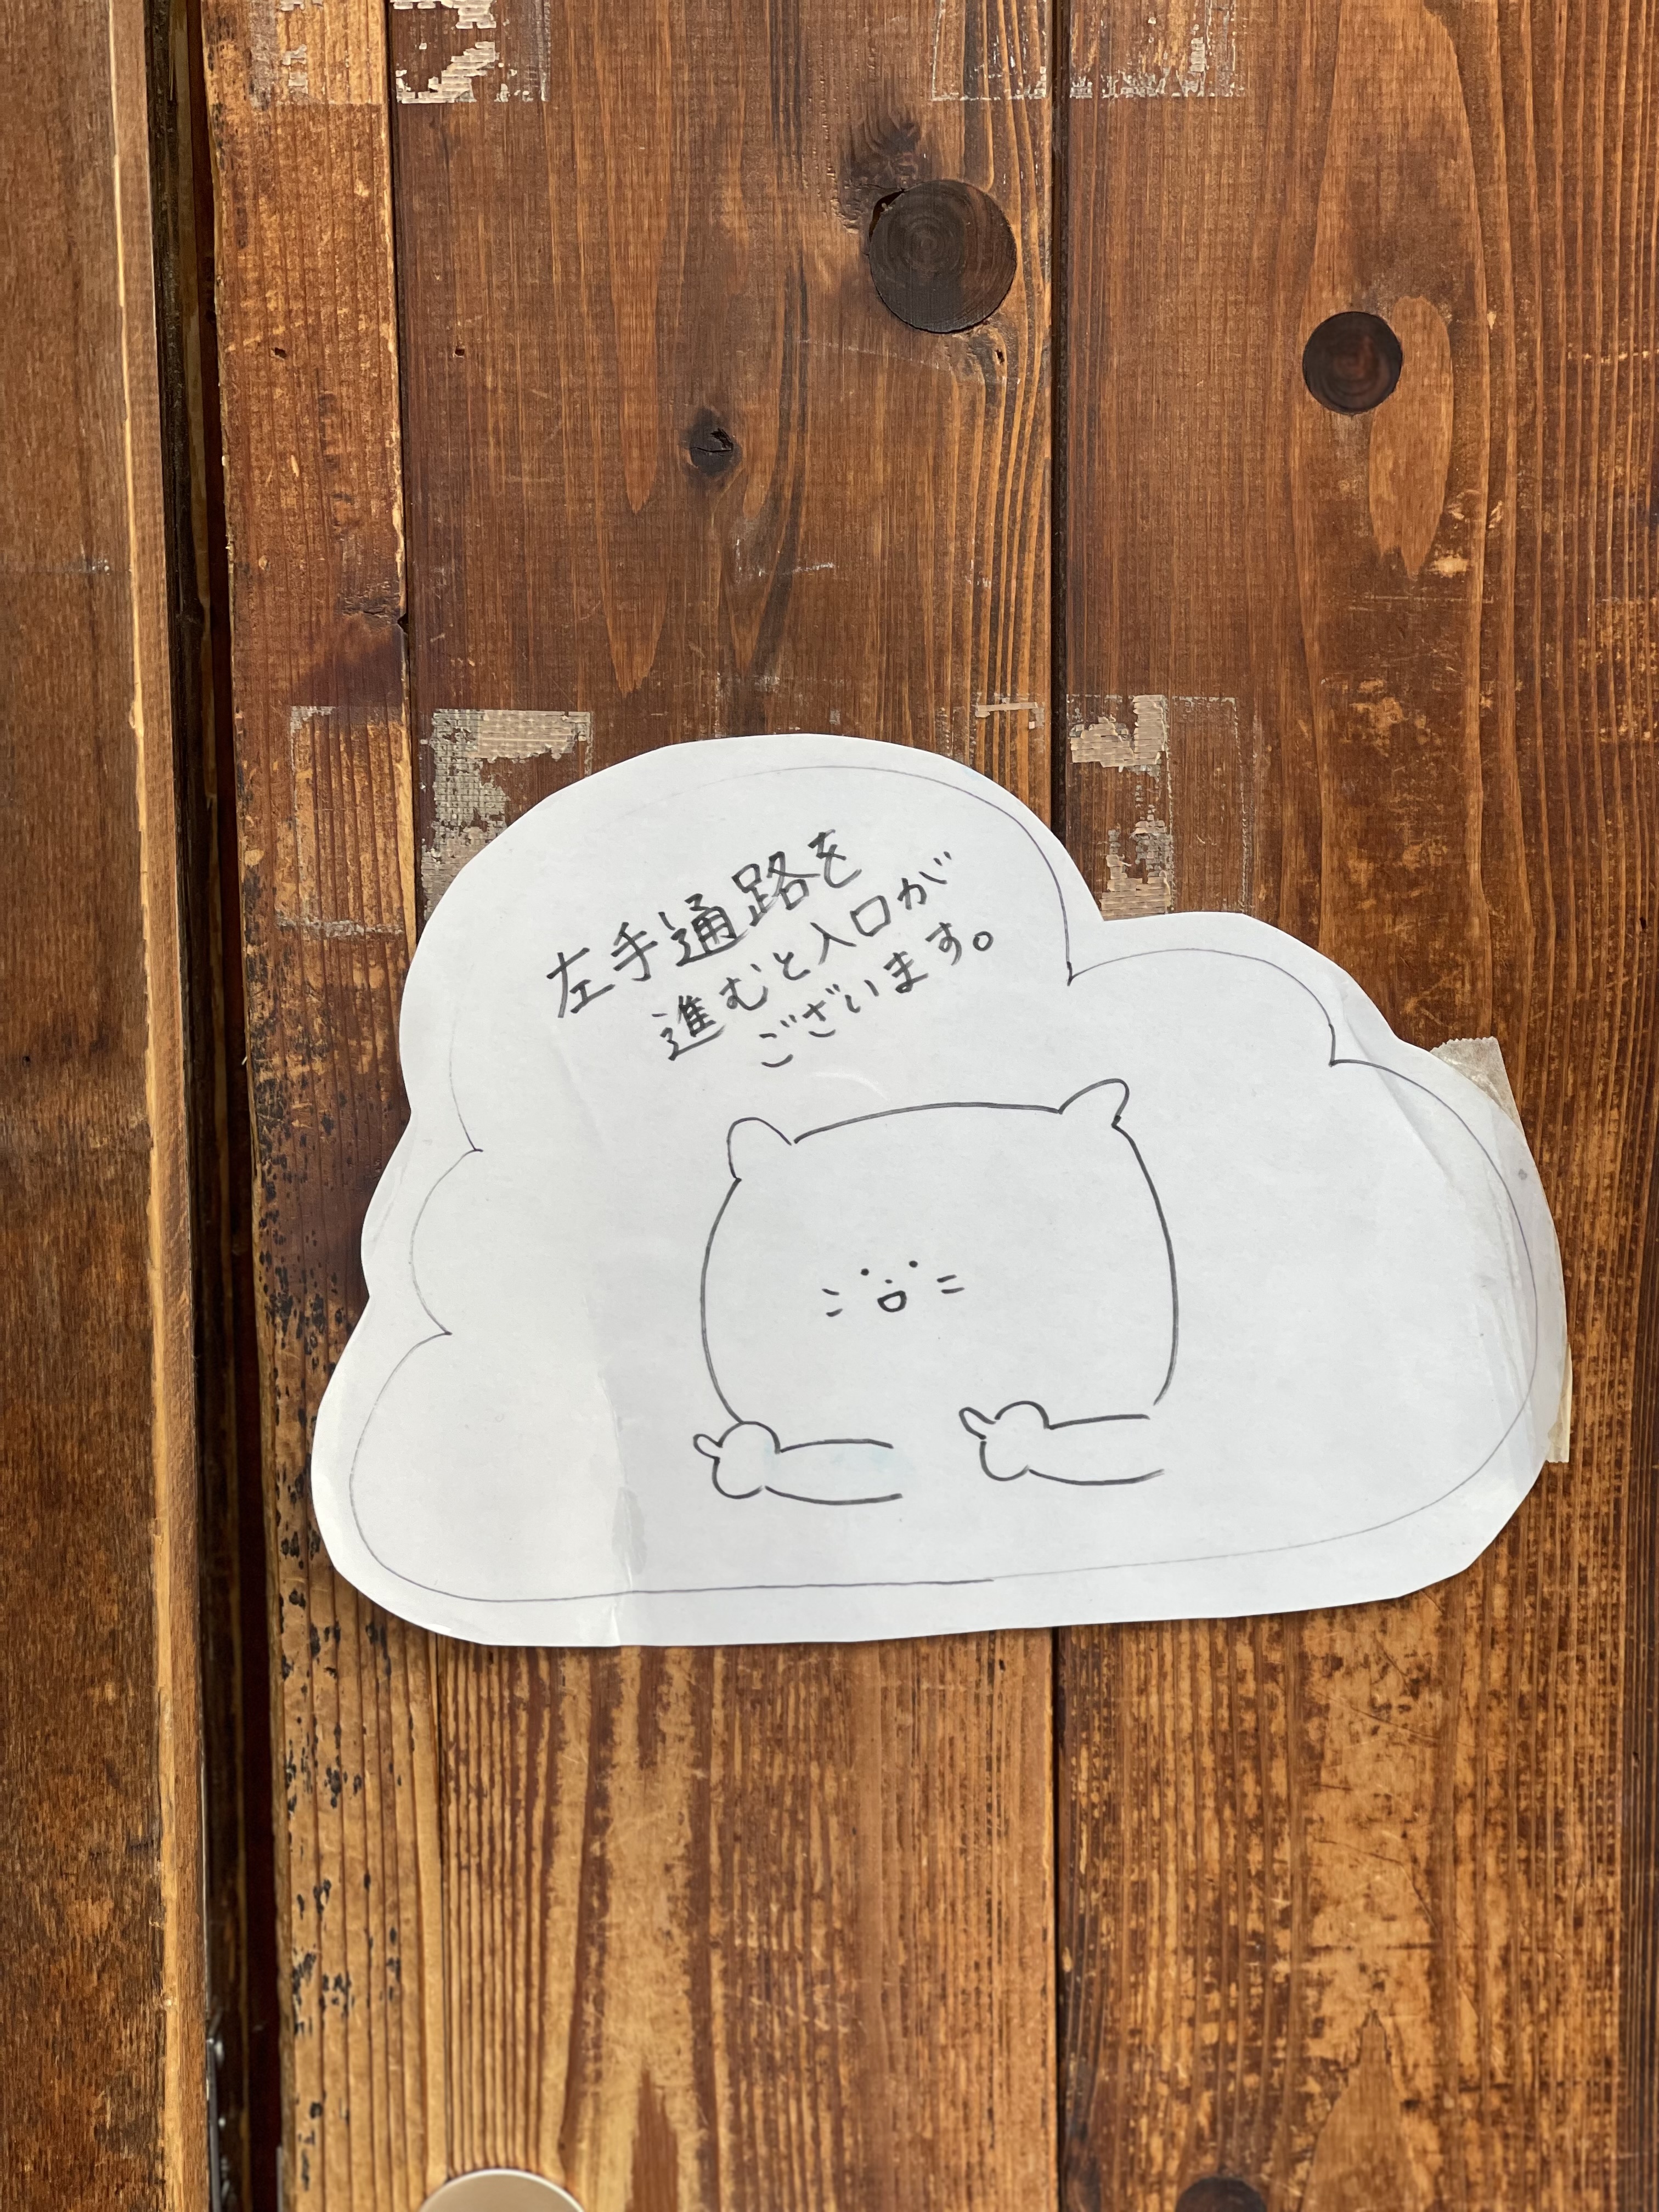 左手通路を
進むと入口が
ございます。